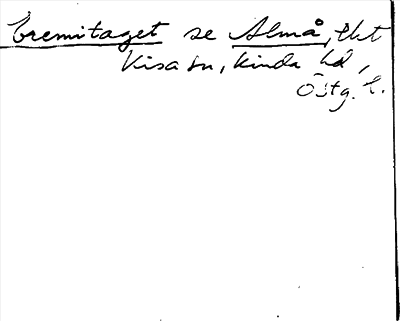 Eremitaget se Almå, tht
Kisa sn, Kinda hd,
Östg. l.